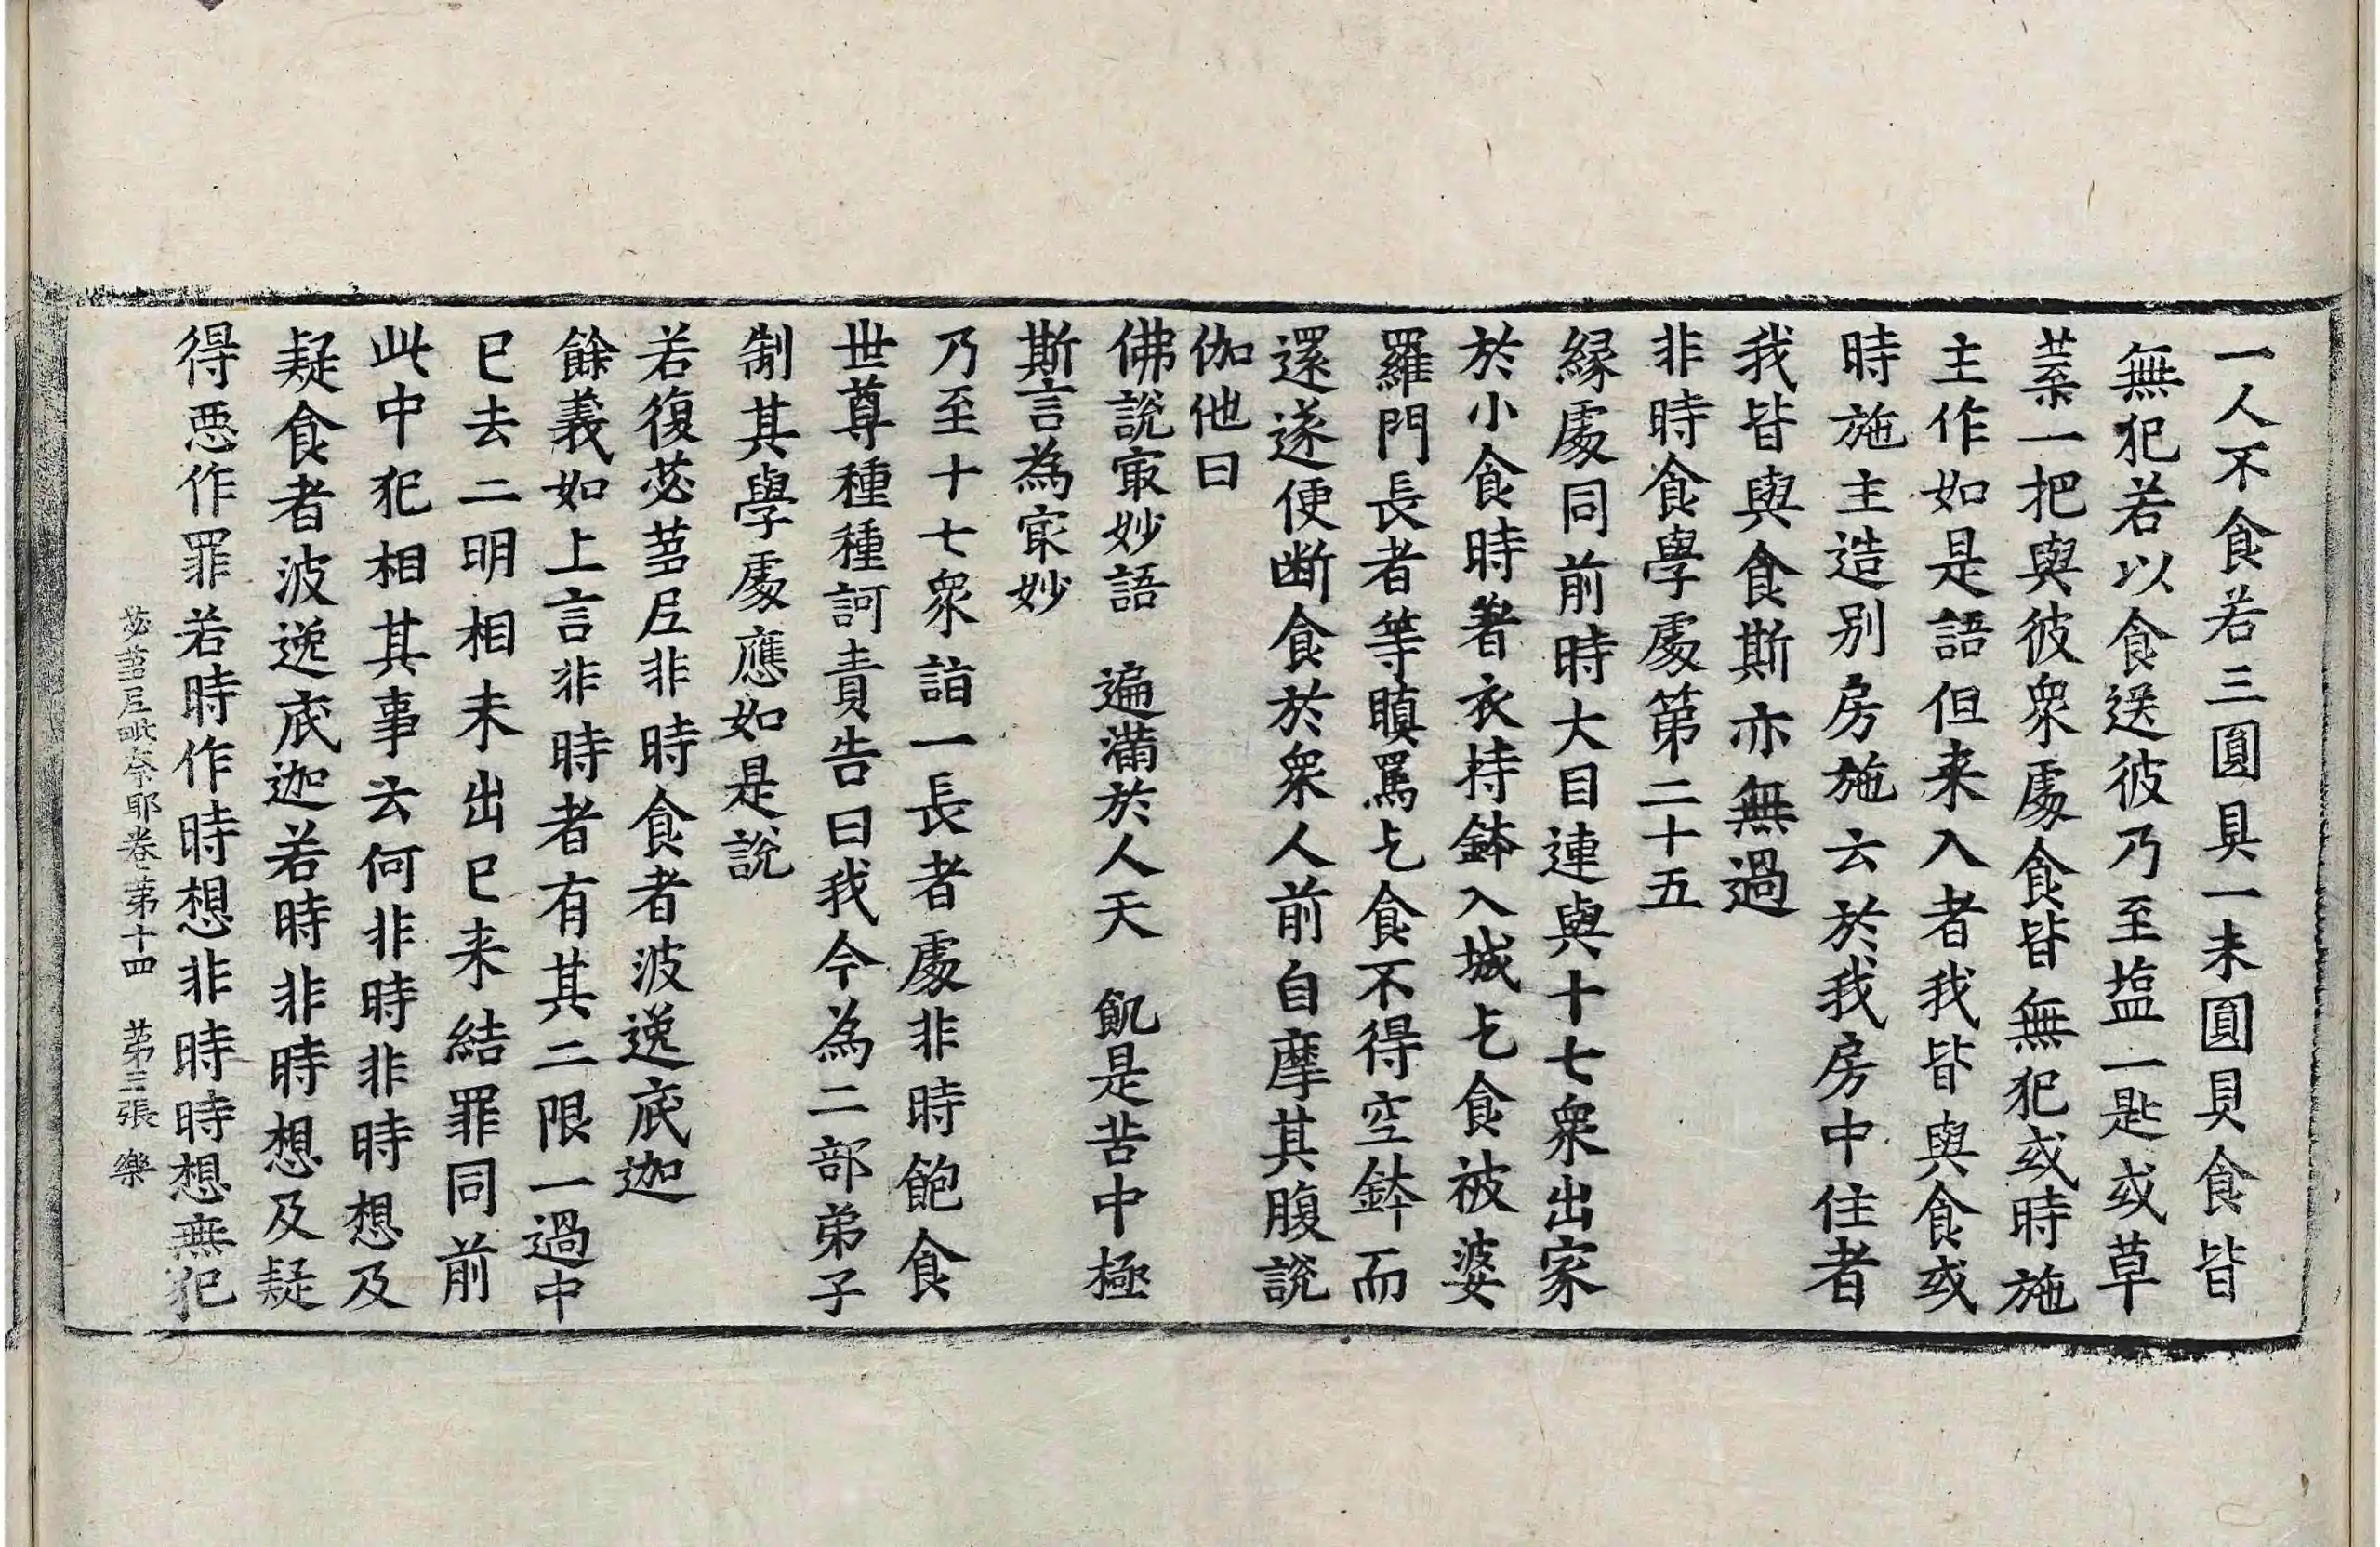 一人不食若三圓具一未圓具食皆
無犯若以食送彼乃至塩一匙或草
葉一把與彼衆處食皆無犯或時施
主作如是語但来入者我皆與食或
時施主造别房施云於我房中住者
我皆與食斯亦無過
非時食學處第二十五
縁處同前時大目連與十七衆出家
於小食時著衣持鉢入城乞食被婆
羅門長者等瞋罵乞食不得空鉢而
還遂便断食於衆人前自摩其腹說
伽他曰
佛說㝡妙語　遍滿於人天　飢是苦中極
斯言為㝡妙
乃至十七衆詣一長者處非時飽食
世尊種種訶責告曰我今為二部弟子
制其學處應如是說
若復苾蒭尼非時食者波逸底迦
餘義如上言非時者有其二限一過中
已去二明相未出已来結罪同前
此中犯相其事云何非時非時想及
疑食者波逸底迦若時非時想及疑
得惡作罪若時作時想非時時想無犯
苾蒭尼毗奈耶卷第十四　第三張　樂